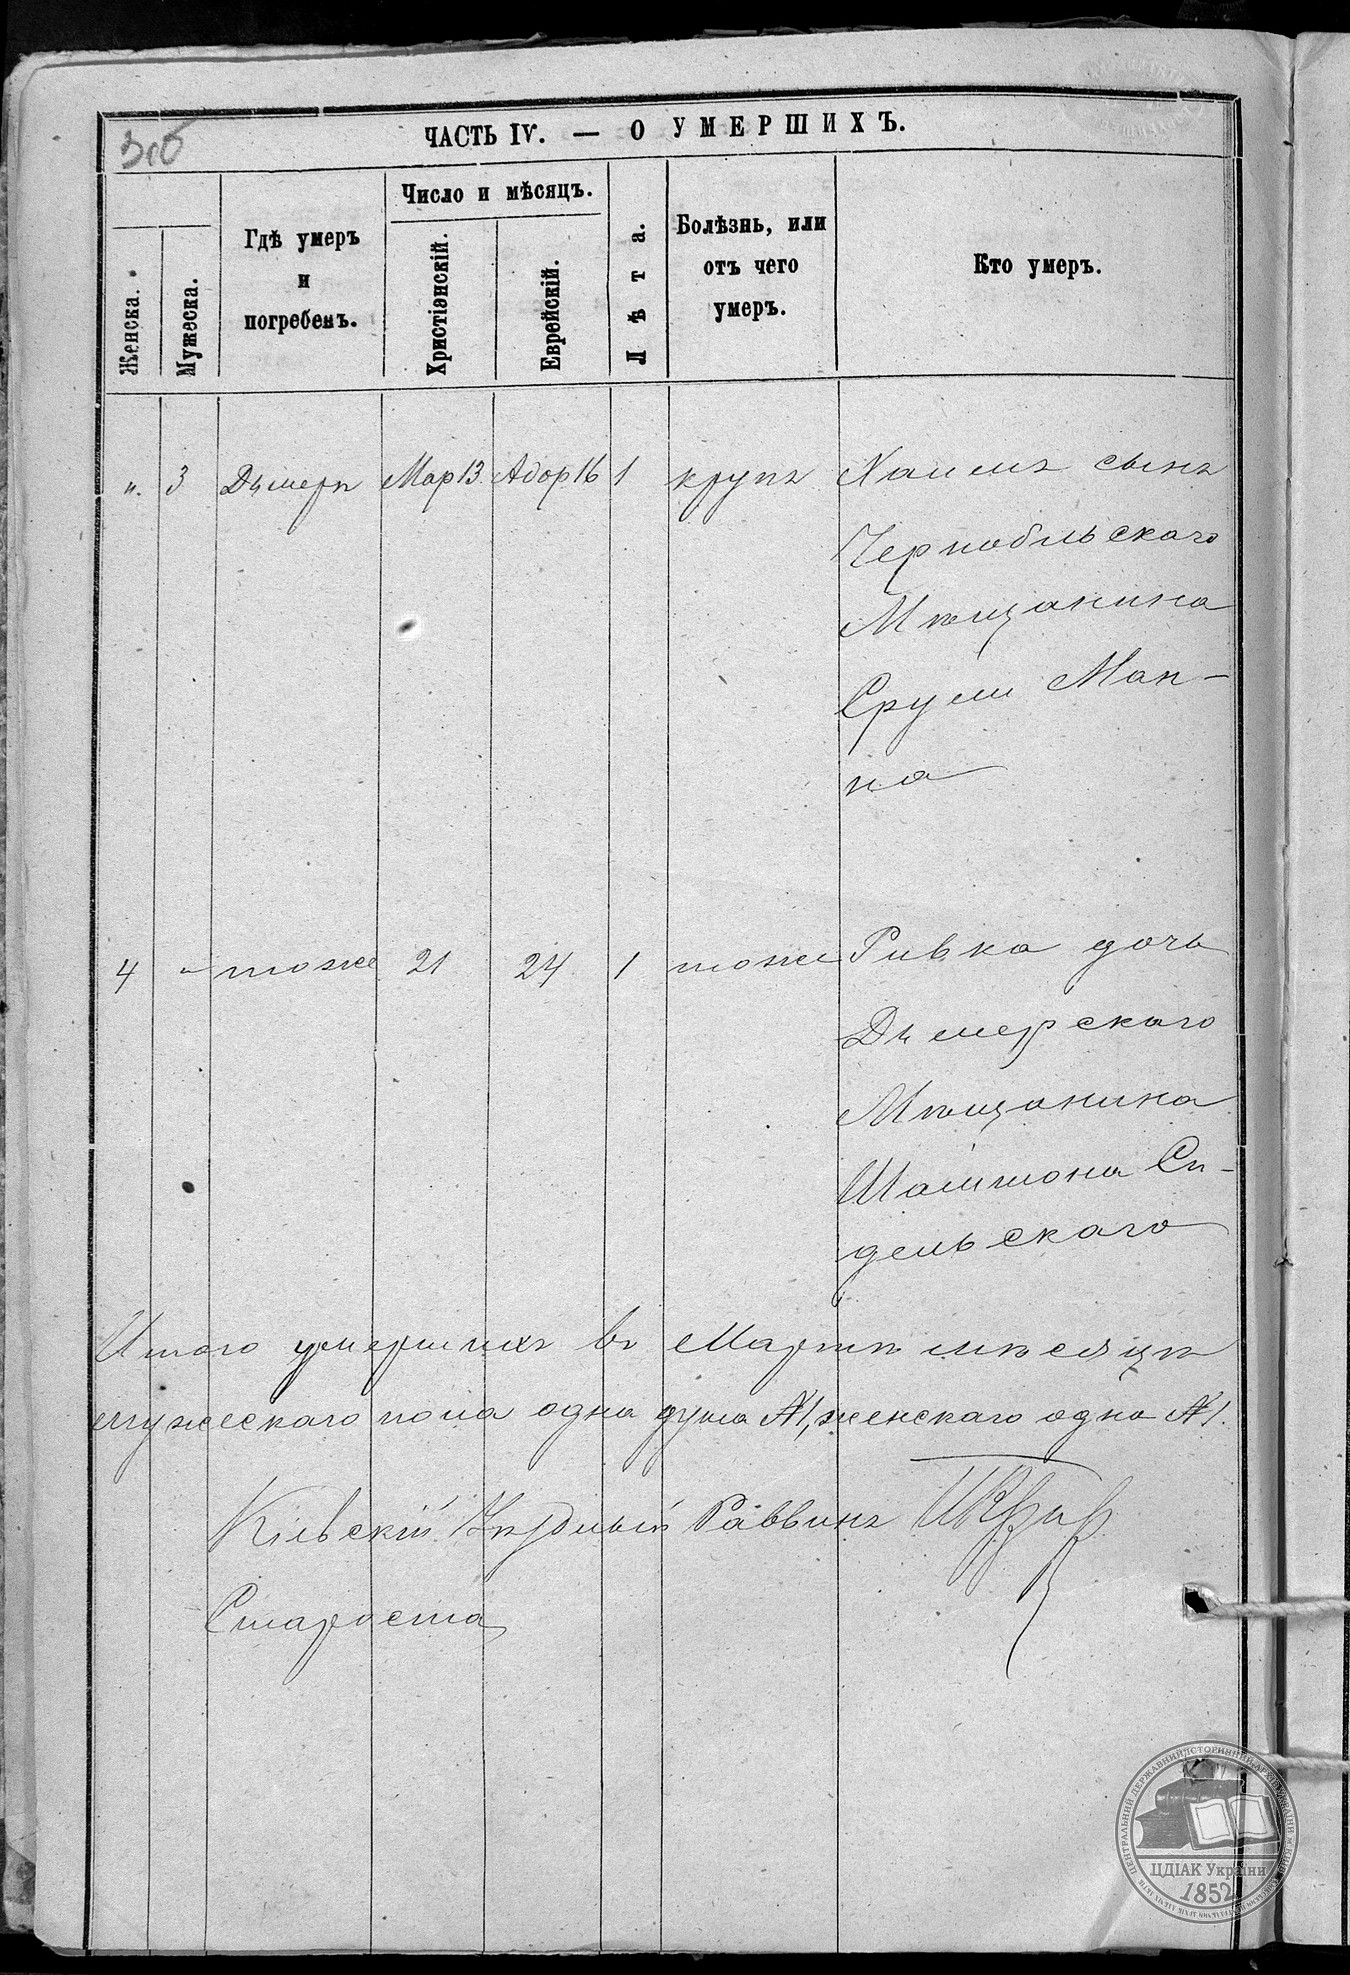 ЧАСТЬ IV. — О УМЕРШИХЪ.
Женска.
Мужеска.
Гдѣ умеръ
и
погребенъ.
Число и мѣсяцъ.
Христіэнскій.
Еврейскій.
Лѣта.
Болѣзнь, или
отъ чего
умеръ.
Кто умеръ.
". 3 Дымеръ Мар 13 Адор 16 1 крупъ Хаимъ сынъ
Чернобыльскаго
Мѣщанина
Сруля Ман-
на
4 " тоже 21 24 1 тоже Ривка дочь
Дымерскаго
Мѣщанина
Шолимона Си-
дельскаго
Итого умершихъ въ Мартѣ мѣсяцѣ
мужескаго пола одна душа №1, женскаго одна №1.
Кіевскій Уѣздный Раввинъ
Староста
ЦЕНТРАЛЬНИЙ ДЕРЖАВНИЙ ІСТОРИЧНИЙ АРХІВ УКРАЇНИ м. КИЇВ
ЦДІАК України
1852